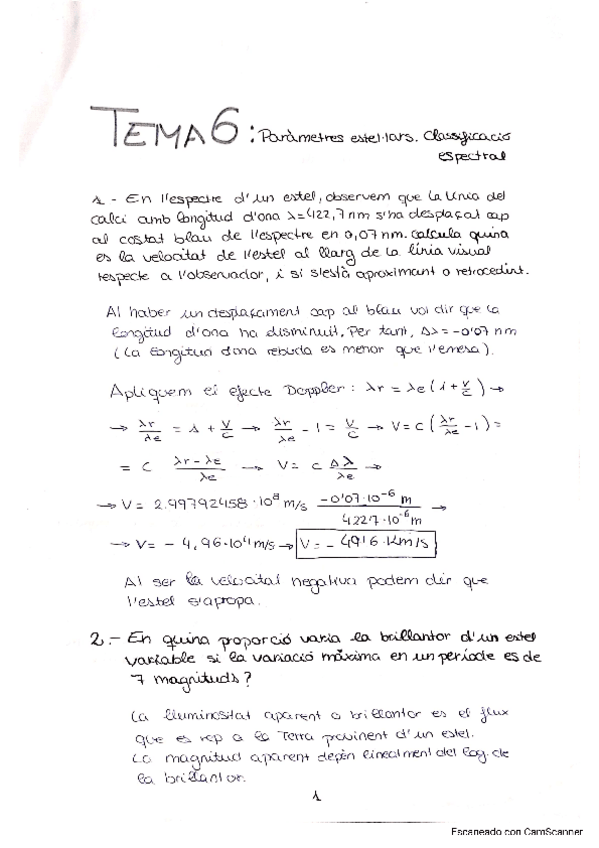 TEMA 6: Paràmetres estel·lars. Classificació
espectral
1.- En l'espectre d'un estel, observem que la línia del
calci amb longitud d'ona λ=422,7 nm s'ha desplaçat cap
al costat blau de l'espectre en 0,07 nm. calcula quina
és la velocitat de l'estel al llarg de la línia visual
respecte a l'observador, i si s'està aproximant o retrocedint.
Al haber un desplaçament cap al blau vol dir que la
longitud d'ona ha disminuit. Per tant, Δλ = -0'07 nm
(La longitud d'ona rebuda es menor que l'emesa).
Apliquem el efecte Doppler: λr = λe (1 + v/c) →
→ λr/λe = 1 + v/c → λr/λe - 1 = v/c → V = c (λr/λe - 1) =
= c (λr - λe)/λe → V = c Δλ/λe →
→ V = 2.99792458·10⁸ m/s (-0'07·10⁻⁶ m)/(422'7·10⁻⁶ m) →
→ V = - 4,96·10⁴ m/s → V = - 49'6 Km/s
Al ser la velocitat negativa podem dir que
l'estel s'apropa.
2.- En quina proporció varia la brillantor d'un estel
variable si la variació màxima en un període es de
7 magnituds?
La lluminositat aparent o brillantor es el flux
que es rep a la Terra provinent d'un estel.
La magnitud aparent depèn linealment del log. de
la brillantor.
1
Escaneado con CamScanner